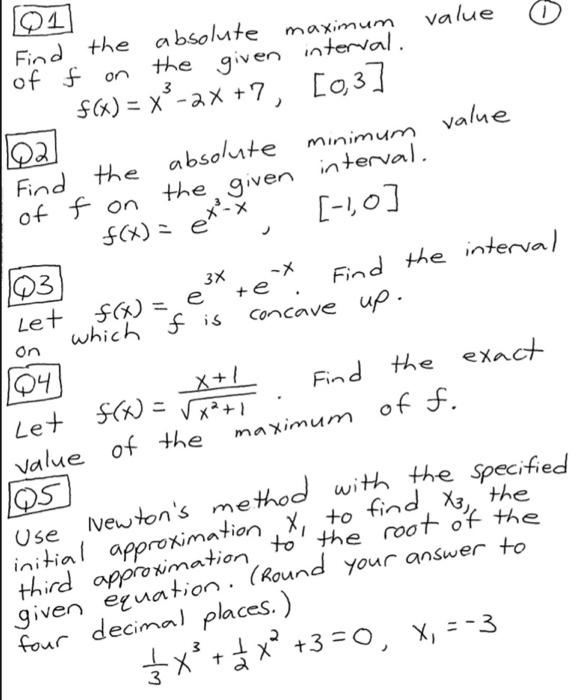 Q1 ①
Find the absolute maximum value
of f on the given interval.
f(x) = x³ - 2x + 7, [0,3]
Q2
Find the absolute minimum value
of f on the given interval.
f(x) = e^(x³-x), [-1,0]
Q3
Let f(x) = e^(3x) + e^(-x). Find the interval
on which f is concave up.
Q4
Let f(x) = (x+1)/√(x²+1). Find the exact
value of the maximum of f.
Q5
Use Newton's method with the specified
initial approximation x₁ to find x₃, the
third approximation to the root of the
given equation. (Round your answer to
four decimal places.)
1/3 x³ + 1/2 x² + 3 = 0, x₁ = -3